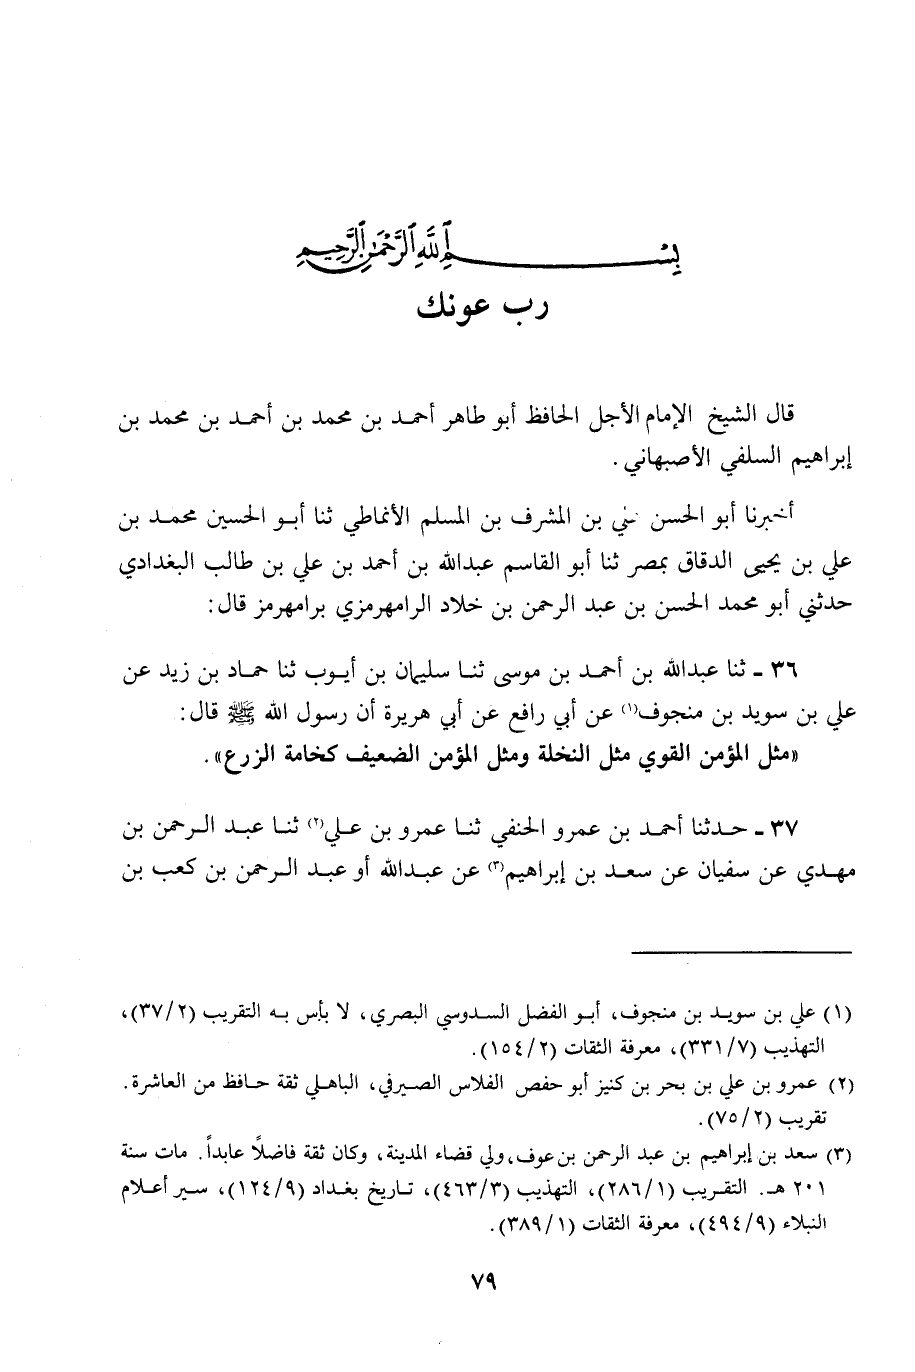 بسم الله الرحمن الرحيم
رب عونك
قال الشيخ الإمام الأجل الحافظ أبو طاهر أحمد بن محمد بن أحمد بن محمد بن
إبراهيم السلفي الأصبهاني.
أخبرنا أبو الحسن بن المشرف بن المسلم الأنماطي ثنا أبو الحسين محمد بن
علي بن يحيى الدقاق بمصر ثنا أبو القاسم عبدالله بن أحمد بن علي بن طالب البغدادي
حدثني أبو محمد الحسن بن عبد الرحمن بن خلاد الرامهرمزي برامهرمز قال:
٣٦ ـ ثنا عبدالله بن أحمد بن موسى ثنا سليمان بن أيوب ثنا حماد بن زيد عن
علي بن سويد بن منجوف(١) عن أبي رافع عن أبي هريرة أن رسول الله ﷺ قال:
«مثل المؤمن القوي مثل النخلة ومثل المؤمن الضعيف كخامة الزرع».
٣٧ ـ حدثنا أحمد بن عمرو الحنفي ثنا عمرو بن علي(٢) ثنا عبد الرحمن بن
مهدي عن سفيان عن سعد بن إبراهيم(٣) عن عبدالله أو عبد الرحمن بن كعب بن
(١) علي بن سويد بن منجوف، أبو الفضل السدوسي البصري، لا بأس به التقريب (٣٧/٢)،
التهذيب (٣٣١/٧)، معرفة الثقات (١٥٤/٢).
(٢) عمرو بن علي بن بحر بن كنيز أبو حفص الفلاس الصيرفي، الباهلي ثقة حافظ من العاشرة.
تقريب (٧٥/٢).
(٣) سعد بن إبراهيم بن عبد الرحمن بن عوف، ولي قضاء المدينة، وكان ثقة فاضلاً عابداً. مات سنة
٢٠١ هـ. التقريب (٢٨٦/١)، التهذيب (٤٦٣/٣)، تاريخ بغداد (١٢٤/٩)، سير أعلام
النبلاء (٤٩٤/٩)، معرفة الثقات (٣٨٩/١).
٧٩